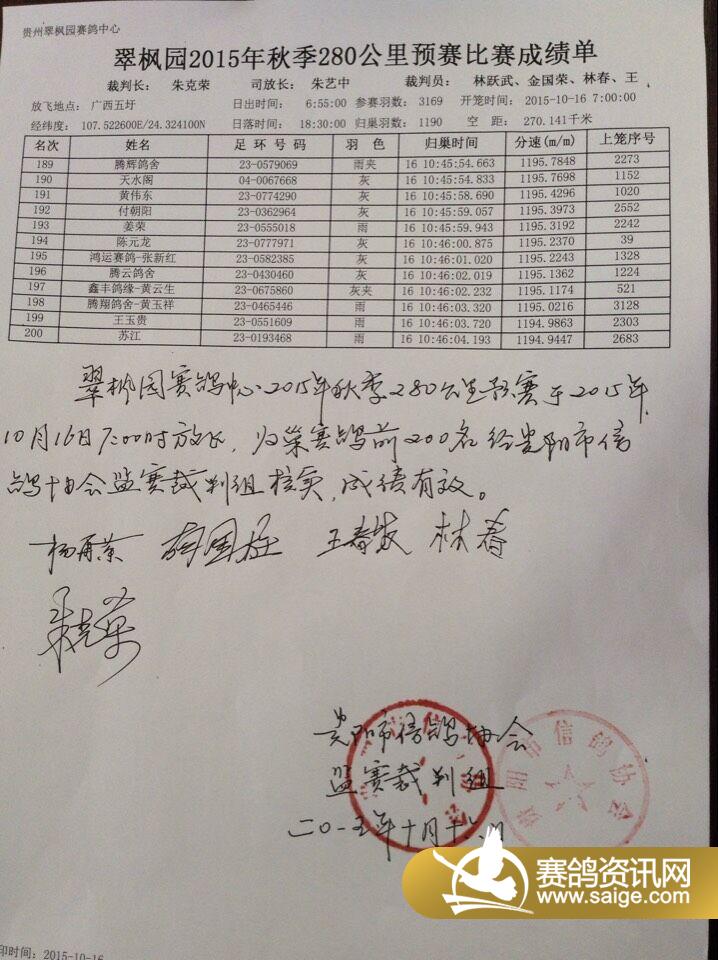 贵州翠枫园赛鸽中心
翠枫园2015年秋季280公里预赛比赛成绩单
裁判长: 朱克荣 司放长: 朱艺中 裁判员: 林跃武、金国荣、林春、王
放飞地点: 广西五圩 日出时间: 6:55:00 参赛羽数: 3169 开笼时间: 2015-10-16 7:00:00
经纬度: 107.522600E/24.324100N 日落时间: 18:30:00 归巢羽数: 1190 空 距: 270.141千米
名次 姓名 足 环 号 码 羽 色 归巢时间 分速(m/m) 上笼序号
189 腾辉鸽舍 23-0579069 雨夹 16 10:45:54.663 1195.7848 2273
190 天水阁 04-0067668 灰 16 10:45:54.833 1195.7698 1152
191 黄伟东 23-0774290 灰 16 10:45:58.690 1195.4296 1020
192 付朝阳 23-0362964 灰 16 10:45:59.057 1195.3973 2552
193 姜荣 23-0555018 雨 16 10:45:59.943 1195.3192 2242
194 陈元龙 23-0777971 灰 16 10:46:00.875 1195.2370 39
195 鸿运赛鸽-张新红 23-0582385 灰 16 10:46:01.020 1195.2243 1328
196 腾云鸽舍 23-0430460 灰 16 10:46:02.019 1195.1362 1224
197 鑫丰鸽缘-黄云生 23-0675860 灰夹 16 10:46:02.232 1195.1174 521
198 腾翔鸽舍-黄玉祥 23-0465446 雨 16 10:46:03.320 1195.0216 3128
199 王玉贵 23-0551609 雨 16 10:46:03.720 1194.9863 2303
200 苏江 23-0193468 雨 16 10:46:04.193 1194.9447 2683
翠枫园赛鸽中心2015年秋季280公里预赛于2015年
10月16日7:00时放飞,归巢赛鸽前200名经贵阳市信
鸽协会监赛裁判组核实,成绩有效。
林春
朱克荣
贵阳市信鸽协会
监赛裁判组
二〇一五年十月十六日
贵阳市信鸽协会
赛鸽资讯网
www.saige.com
印时间: 2015-10-16